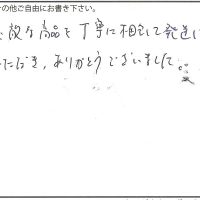 の他ご自由にお書き下さい。
敵な商品を丁寧に梱包して発送
ただき,ありがとうございました。